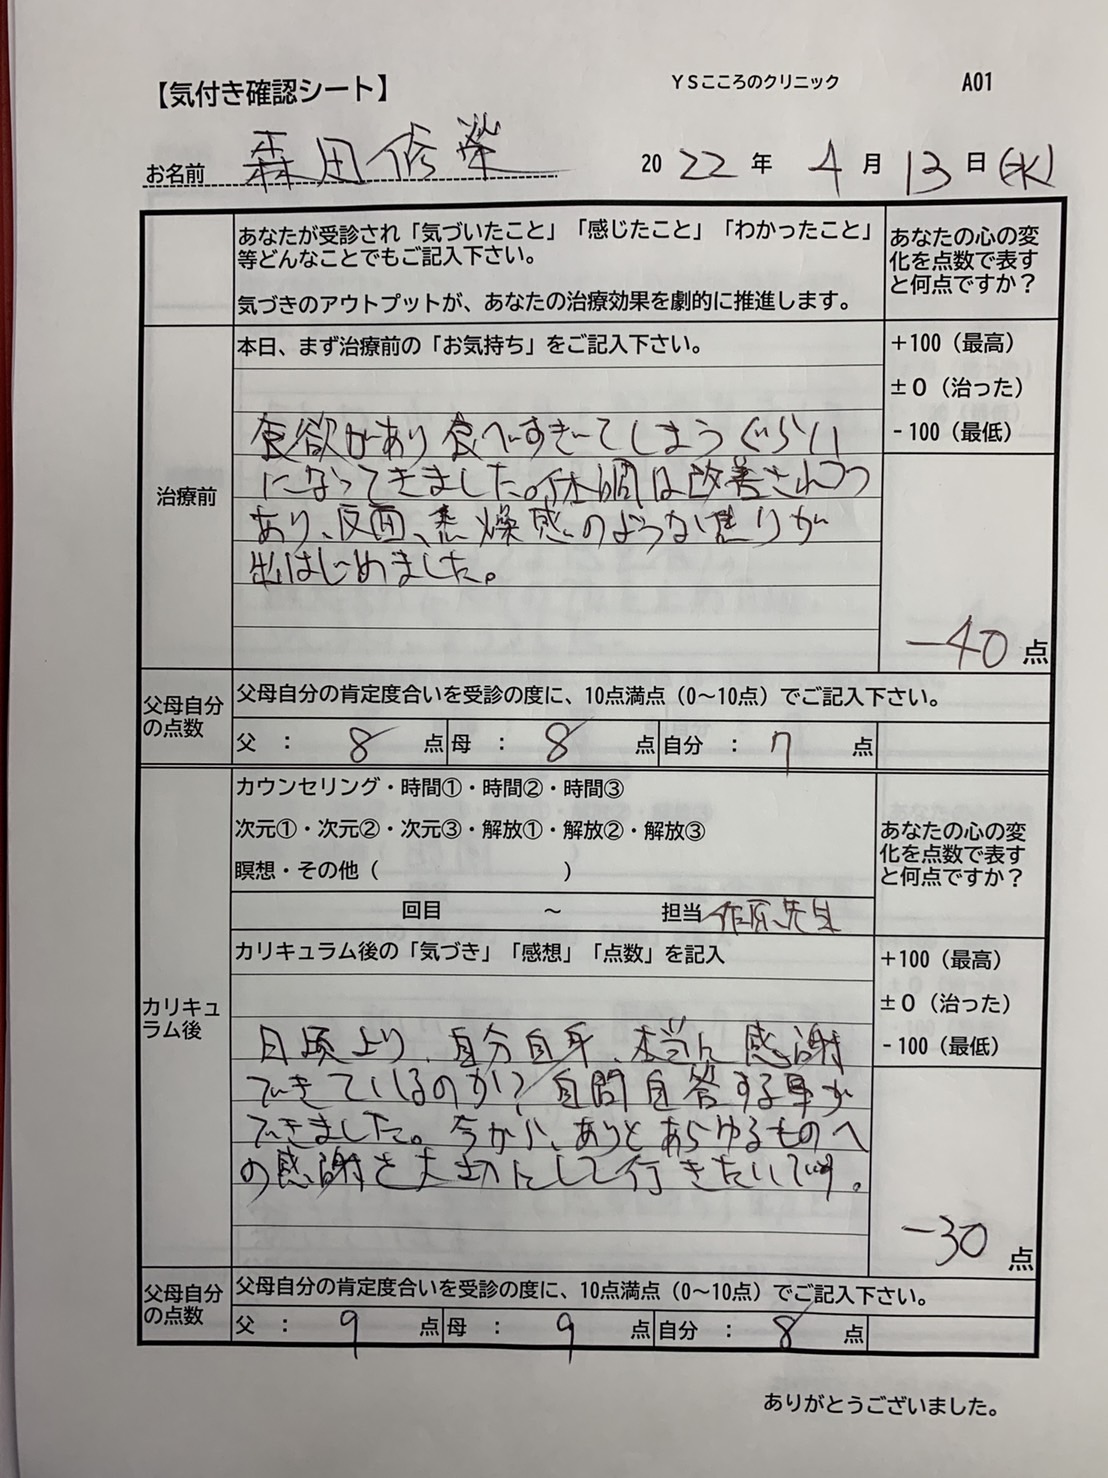 【気付き確認シート】
YSこころのクリニック
A01
お名前 森田修栄
2022年4月13日(水)
あなたが受診され「気づいたこと」「感じたこと」「わかったこと」
等どんなことでもご記入下さい。
気づきのアウトプットが、あなたの治療効果を劇的に推進します。
あなたの心の変
化を点数で表す
と何点ですか？
治療前
本日、まず治療前の「お気持ち」をご記入下さい。
+100（最高）
±０（治った）
-100（最低）
食欲があり食べすぎてしまうぐらい
になってきました。体調は改善されつつ
あり、反面、焦燥感のような焦りが
出はじめました。
-40点
父母自分
の点数
父母自分の肯定度合いを受診の度に、10点満点（0〜10点）でご記入下さい。
父：8点 母：8点 自分：7点
カリキュ
ラム後
カウンセリング・時間①・時間②・時間③
次元①・次元②・次元③・解放①・解放②・解放③
瞑想・その他（　　　　　）
回目　〜　担当 作原先生
あなたの心の変
化を点数で表す
と何点ですか？
カリキュラム後の「気づき」「感想」「点数」を記入
+100（最高）
±０（治った）
-100（最低）
日頃より、自分自身、本当に感謝
できているのか？自問自答する事が
できました。今から、ありとあらゆるものへ
の感謝を大切にして行きたいです。
-30点
父母自分
の点数
父母自分の肯定度合いを受診の度に、10点満点（0〜10点）でご記入下さい。
父：9点 母：9点 自分：8点
ありがとうございました。